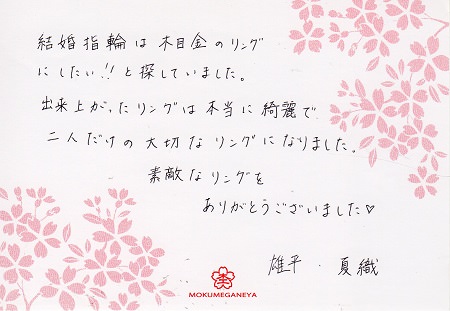 結婚指輪は木目金のリング
にしたい!!と探していました。
出来上がったリングは本当に綺麗で
二人だけの大切なリングになりました。
素敵なリングを
ありがとうございました♡
雄平・夏織
MOKUMEGANEYA